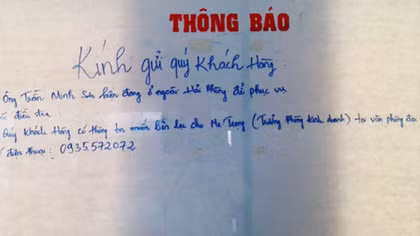 THÔNG BÁO
Kính gửi quý Khách Hàng:
Ông Trần Minh Sơn hiện đang ở ngoài Hải Phòng để phục vụ
điều tra
Quý Khách Hàng có thông tin muốn liên lạc cho Mr Trung (Trưởng Phòng Kinh doanh) tại văn phòng
điện thoại: 0935.572072